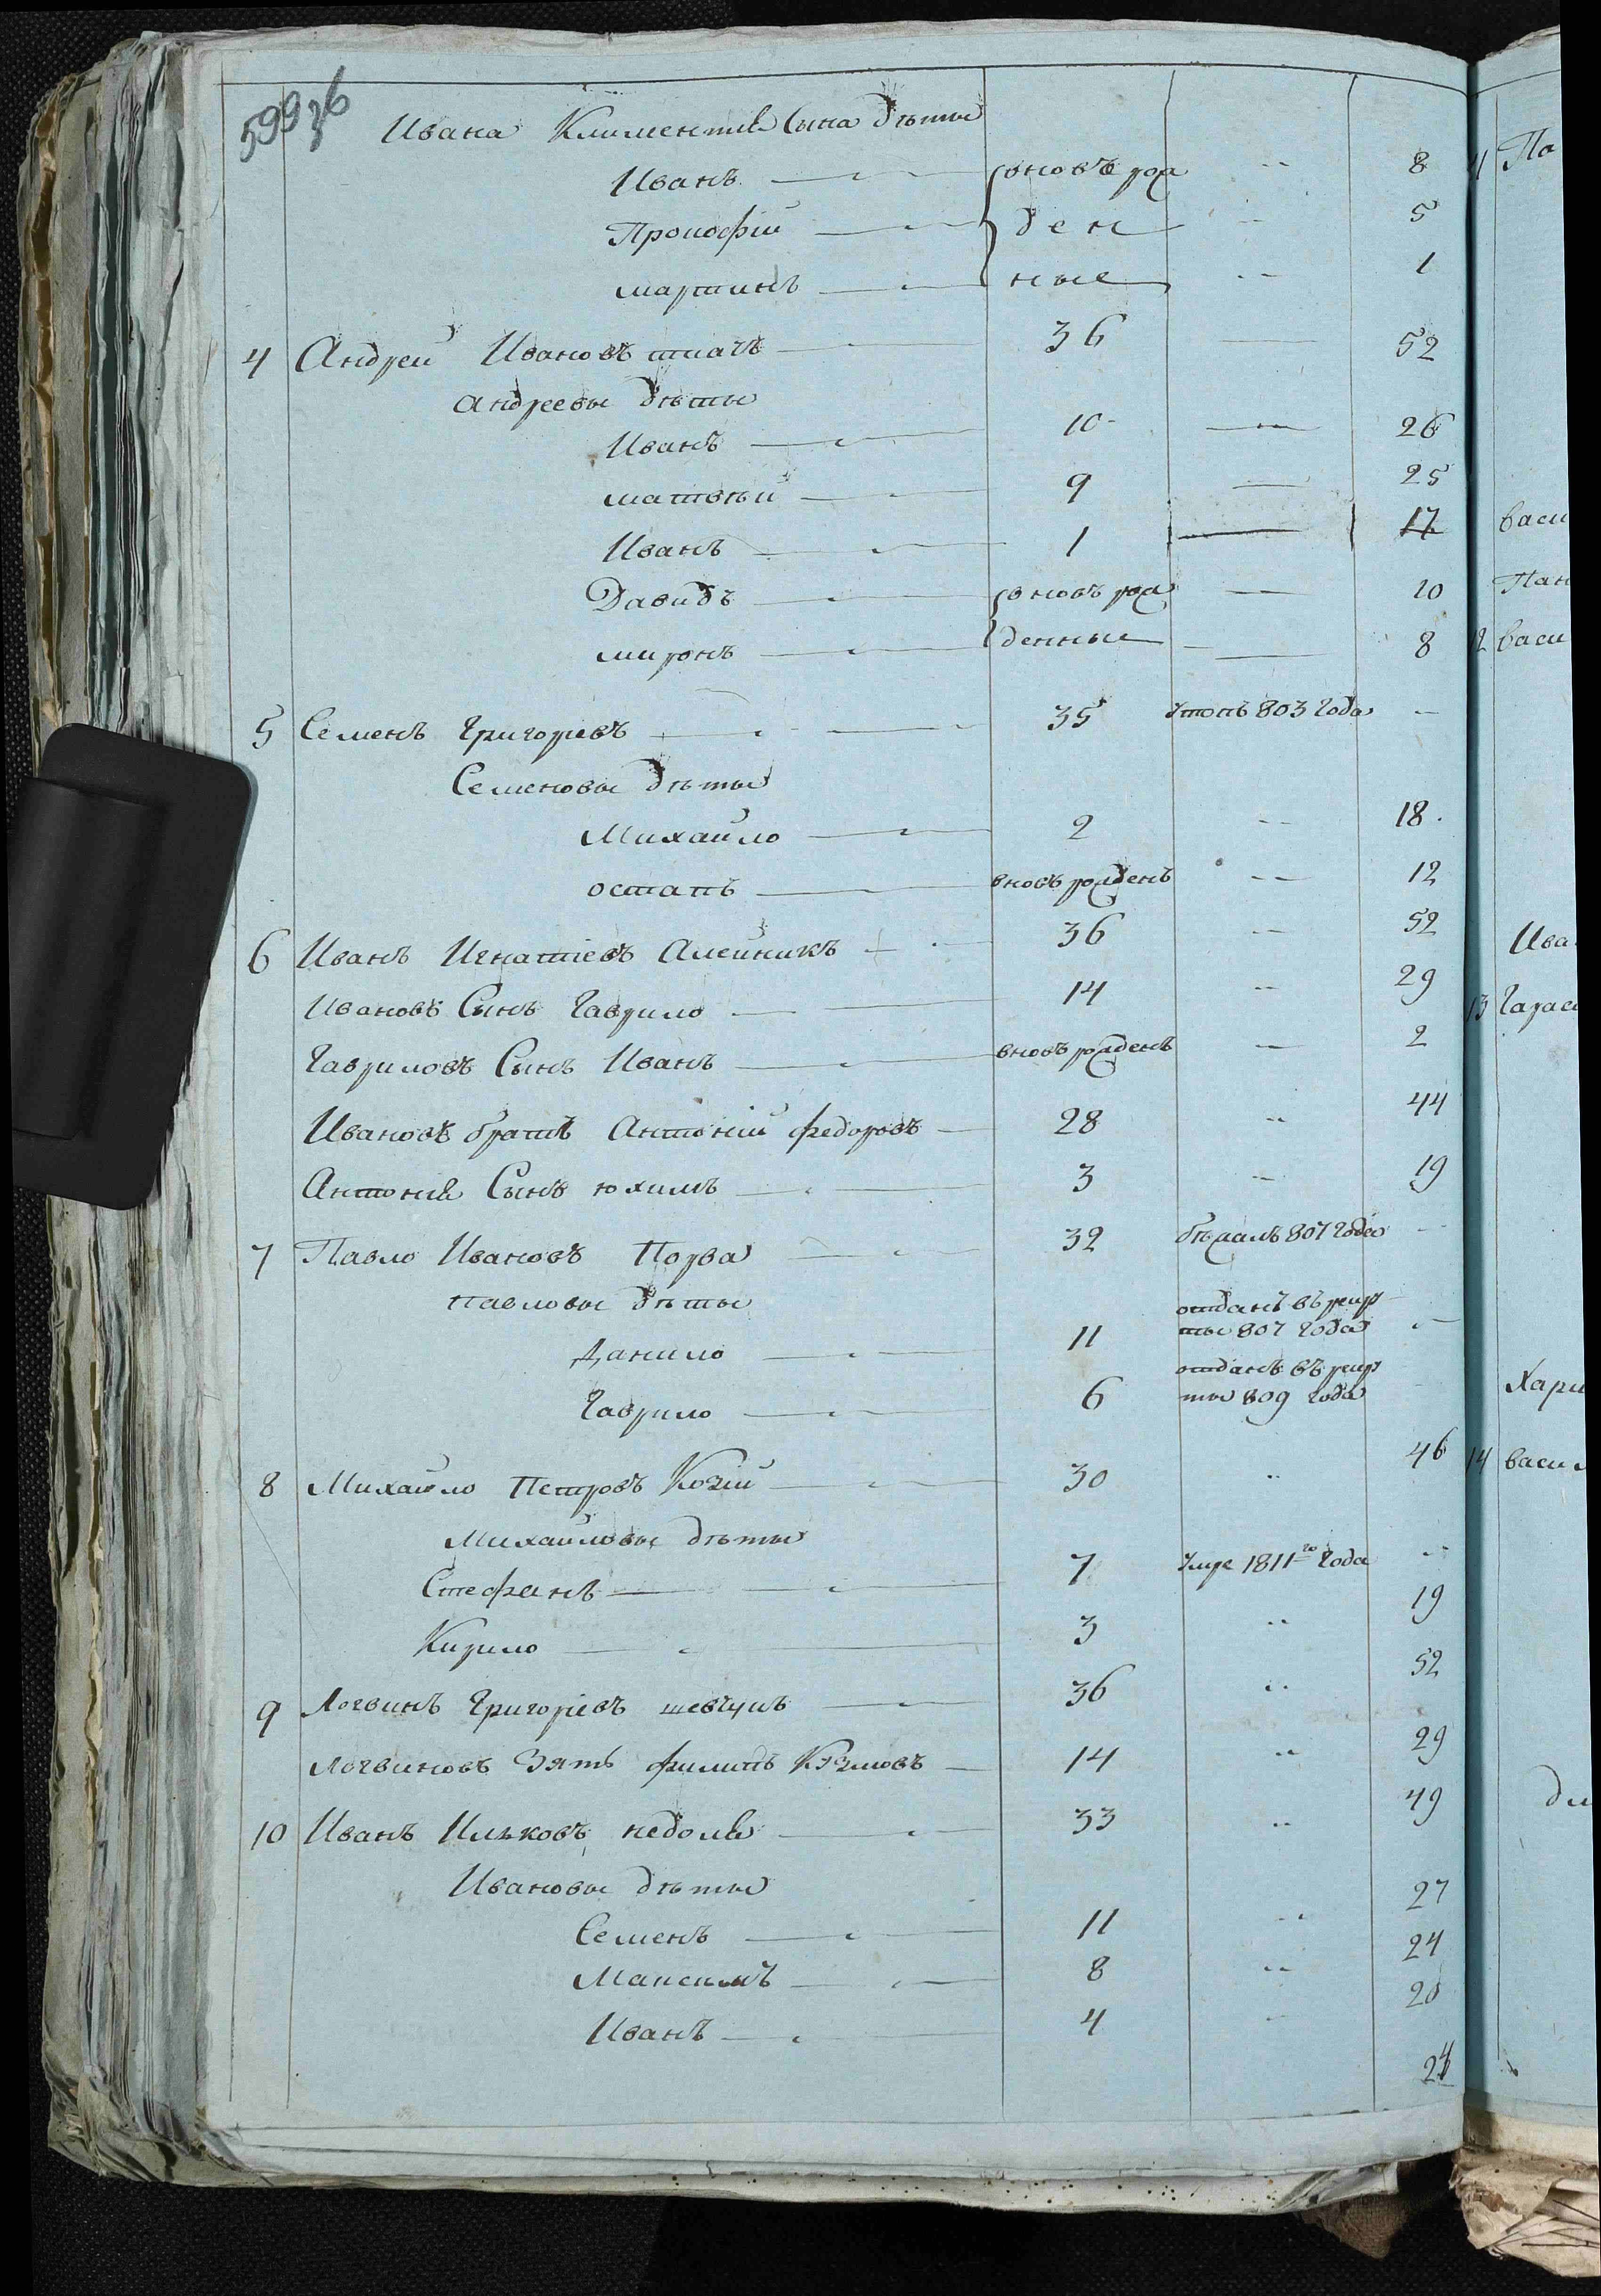 599зб
Ивана Климентія Сына дѣты
Иванъ вновь рож 8
Прокофій ден 5
мартинъ ные 1
4 Андрей Ивановъ ткачъ 36 52
Андреевы дѣты
Иванъ 10 26
матвѣй 9 25
Иванъ 1 17
Давидъ вновь рож 10
миронъ денные 8
5 Семенъ Григорьевъ 35 Утопъ 803 года
Семеновы дѣты
Михайло 2 18
остапъ вновь рожденъ 12
6 Иванъ Игнатіевъ Алейникъ 36 52
Ивановъ Сынъ Гаврило 14 29
Гавриловъ Сынъ Иванъ вновь рожденъ 2
Ивановъ братъ Антоній федоровъ 28 44
Антонія Сынъ юхимъ 3 19
7 Павло Ивановъ Порва 32 бѣжалъ 807 года
Павловы дѣты
Данило 11 отданъ въ рекру
ты 807 года
Гаврило 6 отданъ въ рекру
ты 809 года
8 Михайло Петровъ Козій 30 46
Михайловы дѣты
Стефанъ 7 Умре 1811го года
Кирило 3 19
9 Логвинъ Григоріевъ шевчукъ 36 52
логвиновъ Зять филипъ Кузмовъ 14 29
10 Иванъ Ильковъ недоля 33 49
Ивановы дѣты
Семенъ 11 27
Максимъ 8 24
Иванъ 4 20
24
11 Па
васи
Пан
12 васи
Ива
13 Гарас
Хари
14 васил